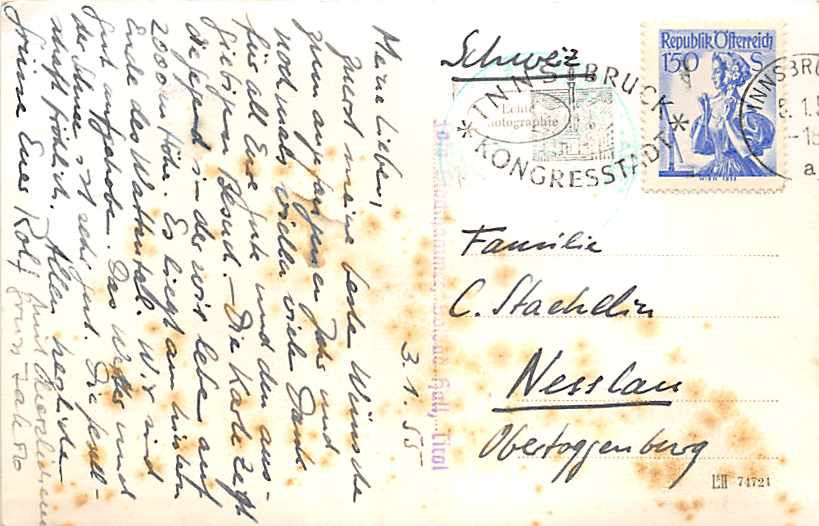 Meine Lieben,
zuerst meine beste Wünsche
zum angefangenen Jahr und
nochmals vielen vielen Dank
für all Eure gute und den aus-
giebigen Besuch. – Die Karte zeigt
die Gegend in der wir leben auf
2000 m Höhe. Es liegt am hintern
Ende des Wattental. Wir sind
gut aufgehoben. Das Wetter und
der Schnee ist sehr gut. Die Gesell-
schaft fröhlich. Allen herzliche
Grüsse Euer Rolf
mit herzlichem
Gruss
3.1.55
Schweiz
INNSBRUCK
KONGRESSSTADT
Echte
Photographie
Republik Österreich
1'50 S
WIEN
INNSBRU
1.5
-18
a
Familie
C. Staehelin
Nesslau
Obertoggenburg
Tirol
L:II 74721